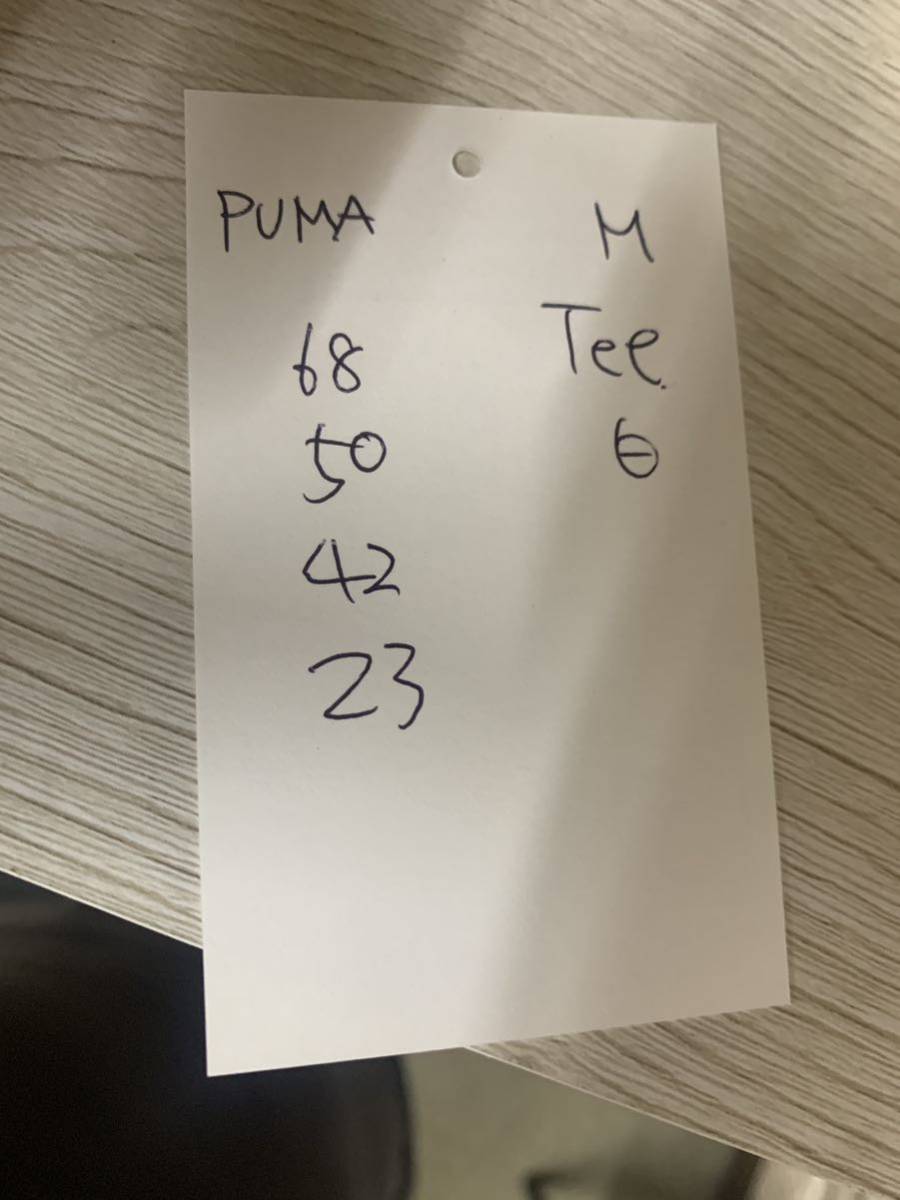 PUMA M
68 Tee.
50
42
23